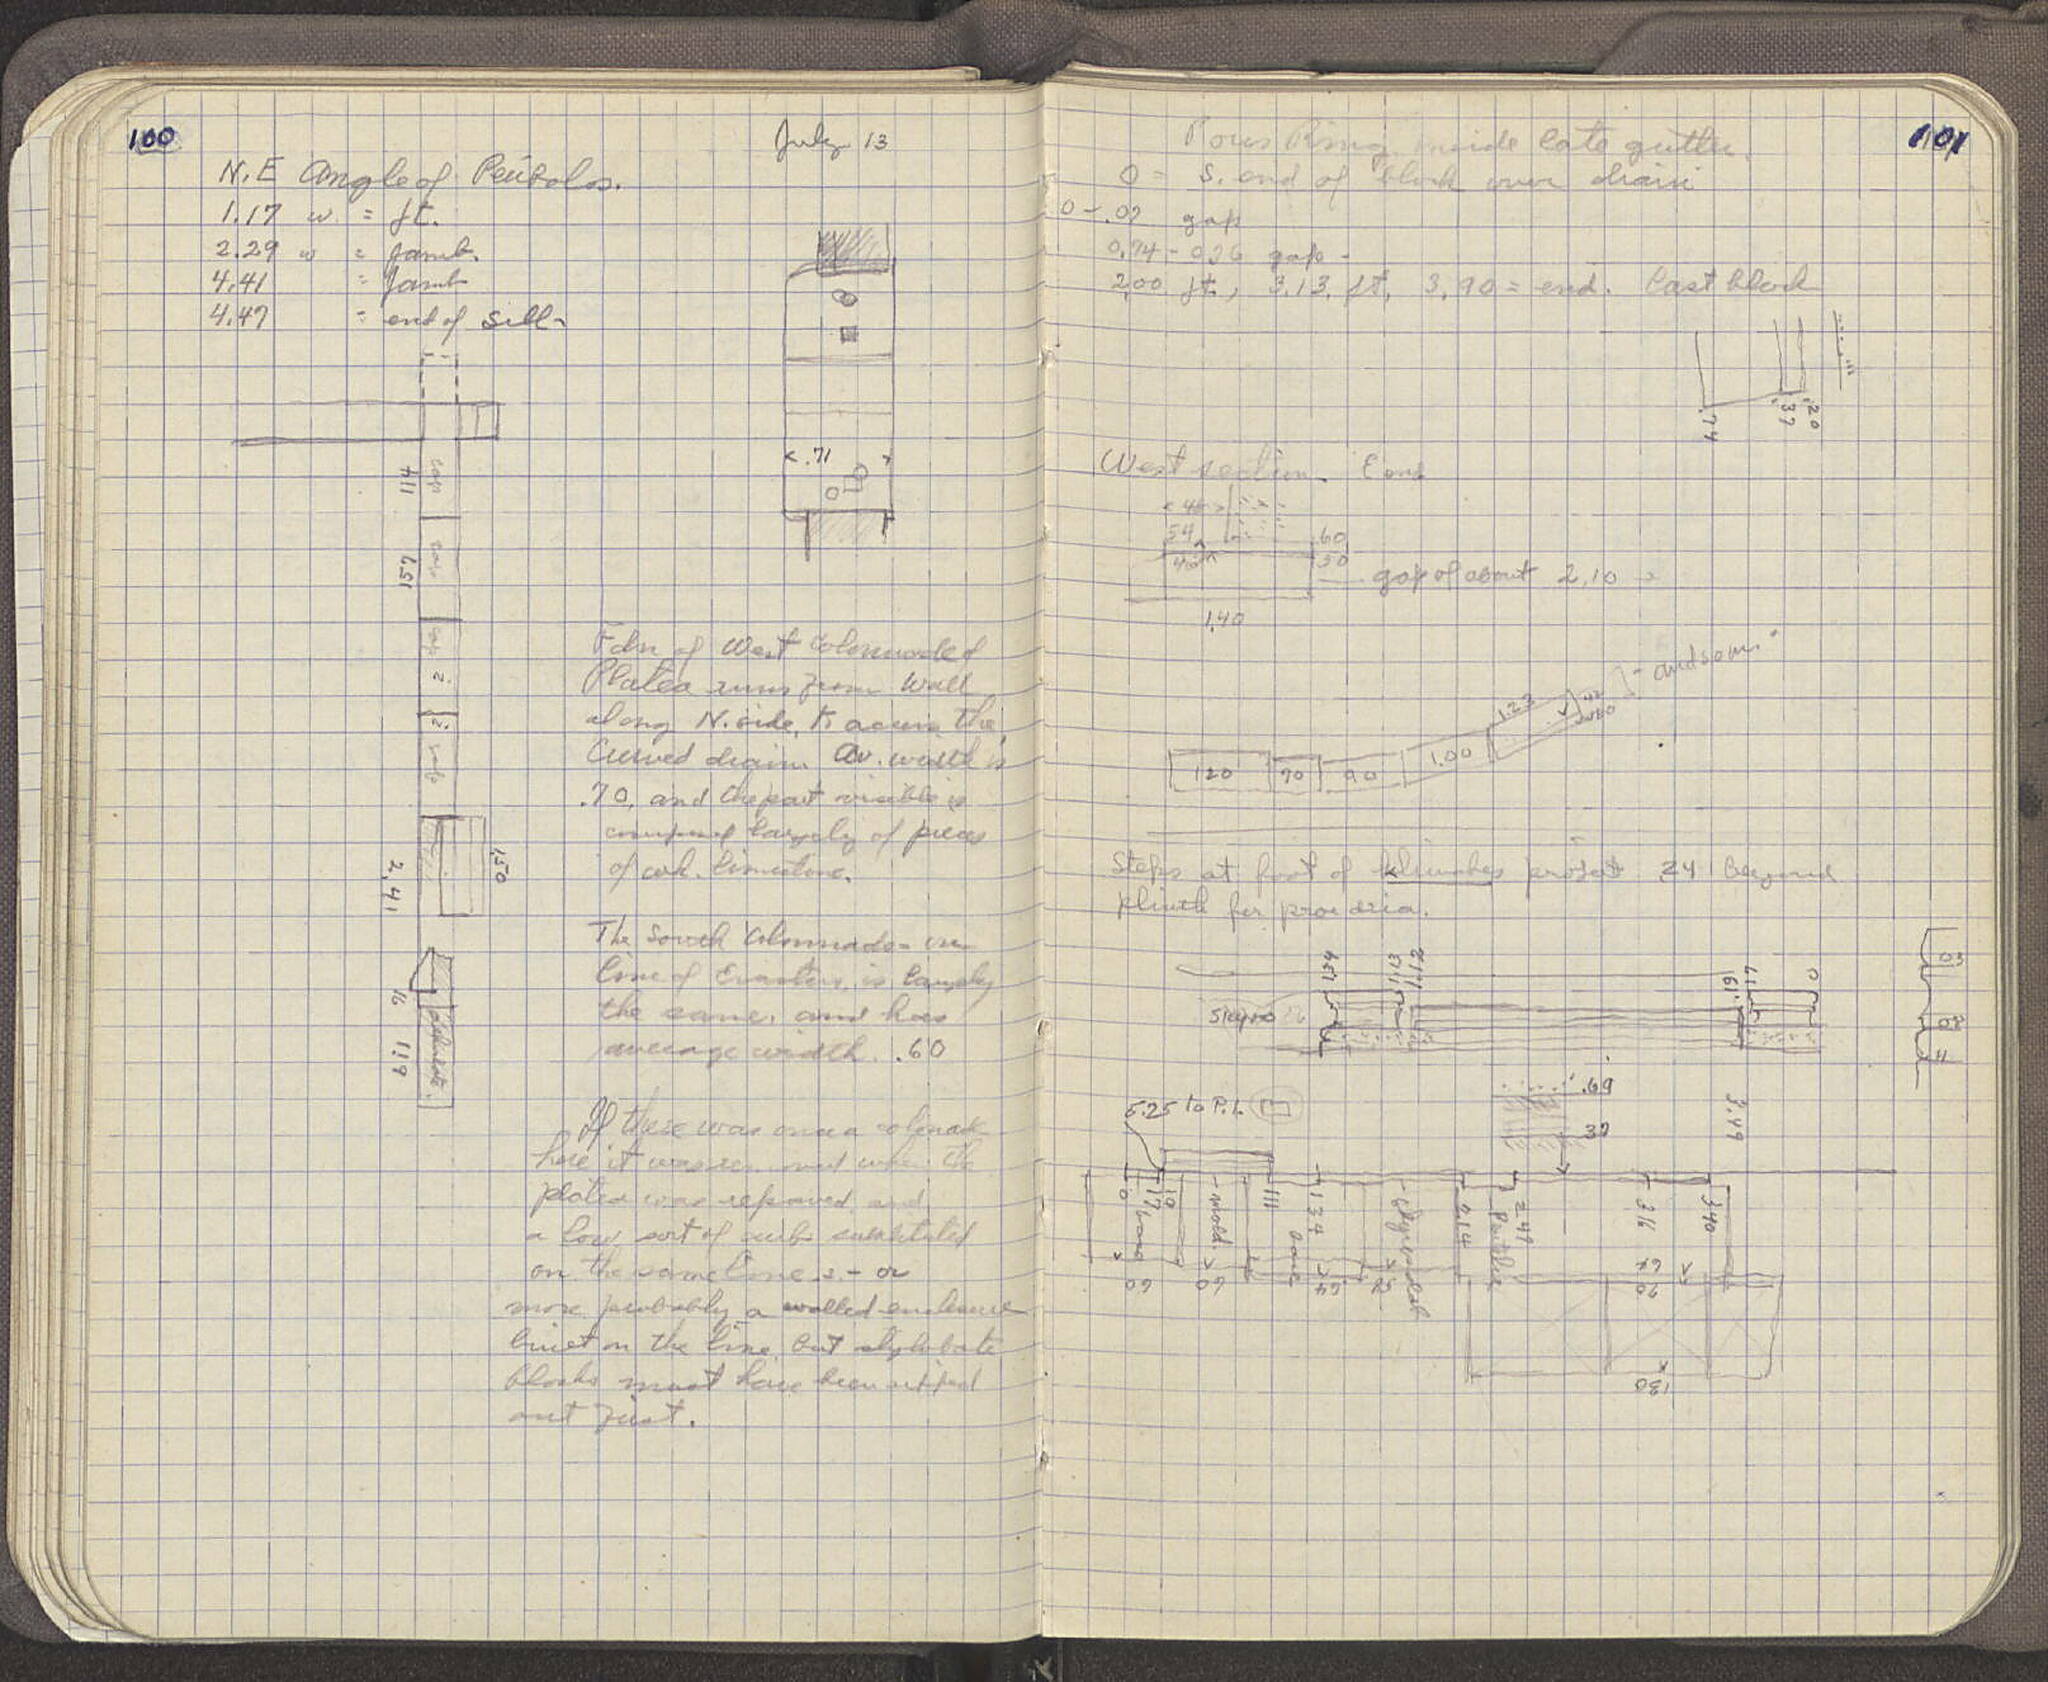 100
July 13
N.E Angle of Peribolos.
1.17 w = jt.
2.29 w = jamb.
4.41 = jamb
4.47 = end of sill
gap
1.14
gap
1.57
gap
2.
2.
1.50
2.41
16
1.19
< .71 >
Fdn of West Colonnade of
Platea runs from wall
along N. side, to across the
Curved drain. Av. width is
.70, and the part visible is
composed largely of pieces
of coh. limestone.
The South Colonnade on
line of Erastus, is largely
the same, and has
average width .60
If there was once a colonnade
here it was removed when the
platea was repaved and
a low sort of curb substituted
on the same lines - or
more probably a walled enclosure
built on the line, but stylobate
blocks must have been ripped
out first.
101
Poros Ring inside late gutter.
0 = S. end of block over drain
0 - .02 gap
gap
2.00 jt., 3.13 jt, 3.90 = end. Last block
.74
.37
.20
West section. E end
54
.60
.50
gap of about 2.10
1.40
1.20
70
90
1.00
1.23
and so on.
Steps at foot of klimakes project 24 beyond
plinth for proedria.
434
313
217
.19
17
0
steps
03
08
11
.69
.37
3.49
5.25 to P.L.
0
17
10
mold.
111
134
base
214
Pentelic
249
316
340
60
60
64
67
70
130